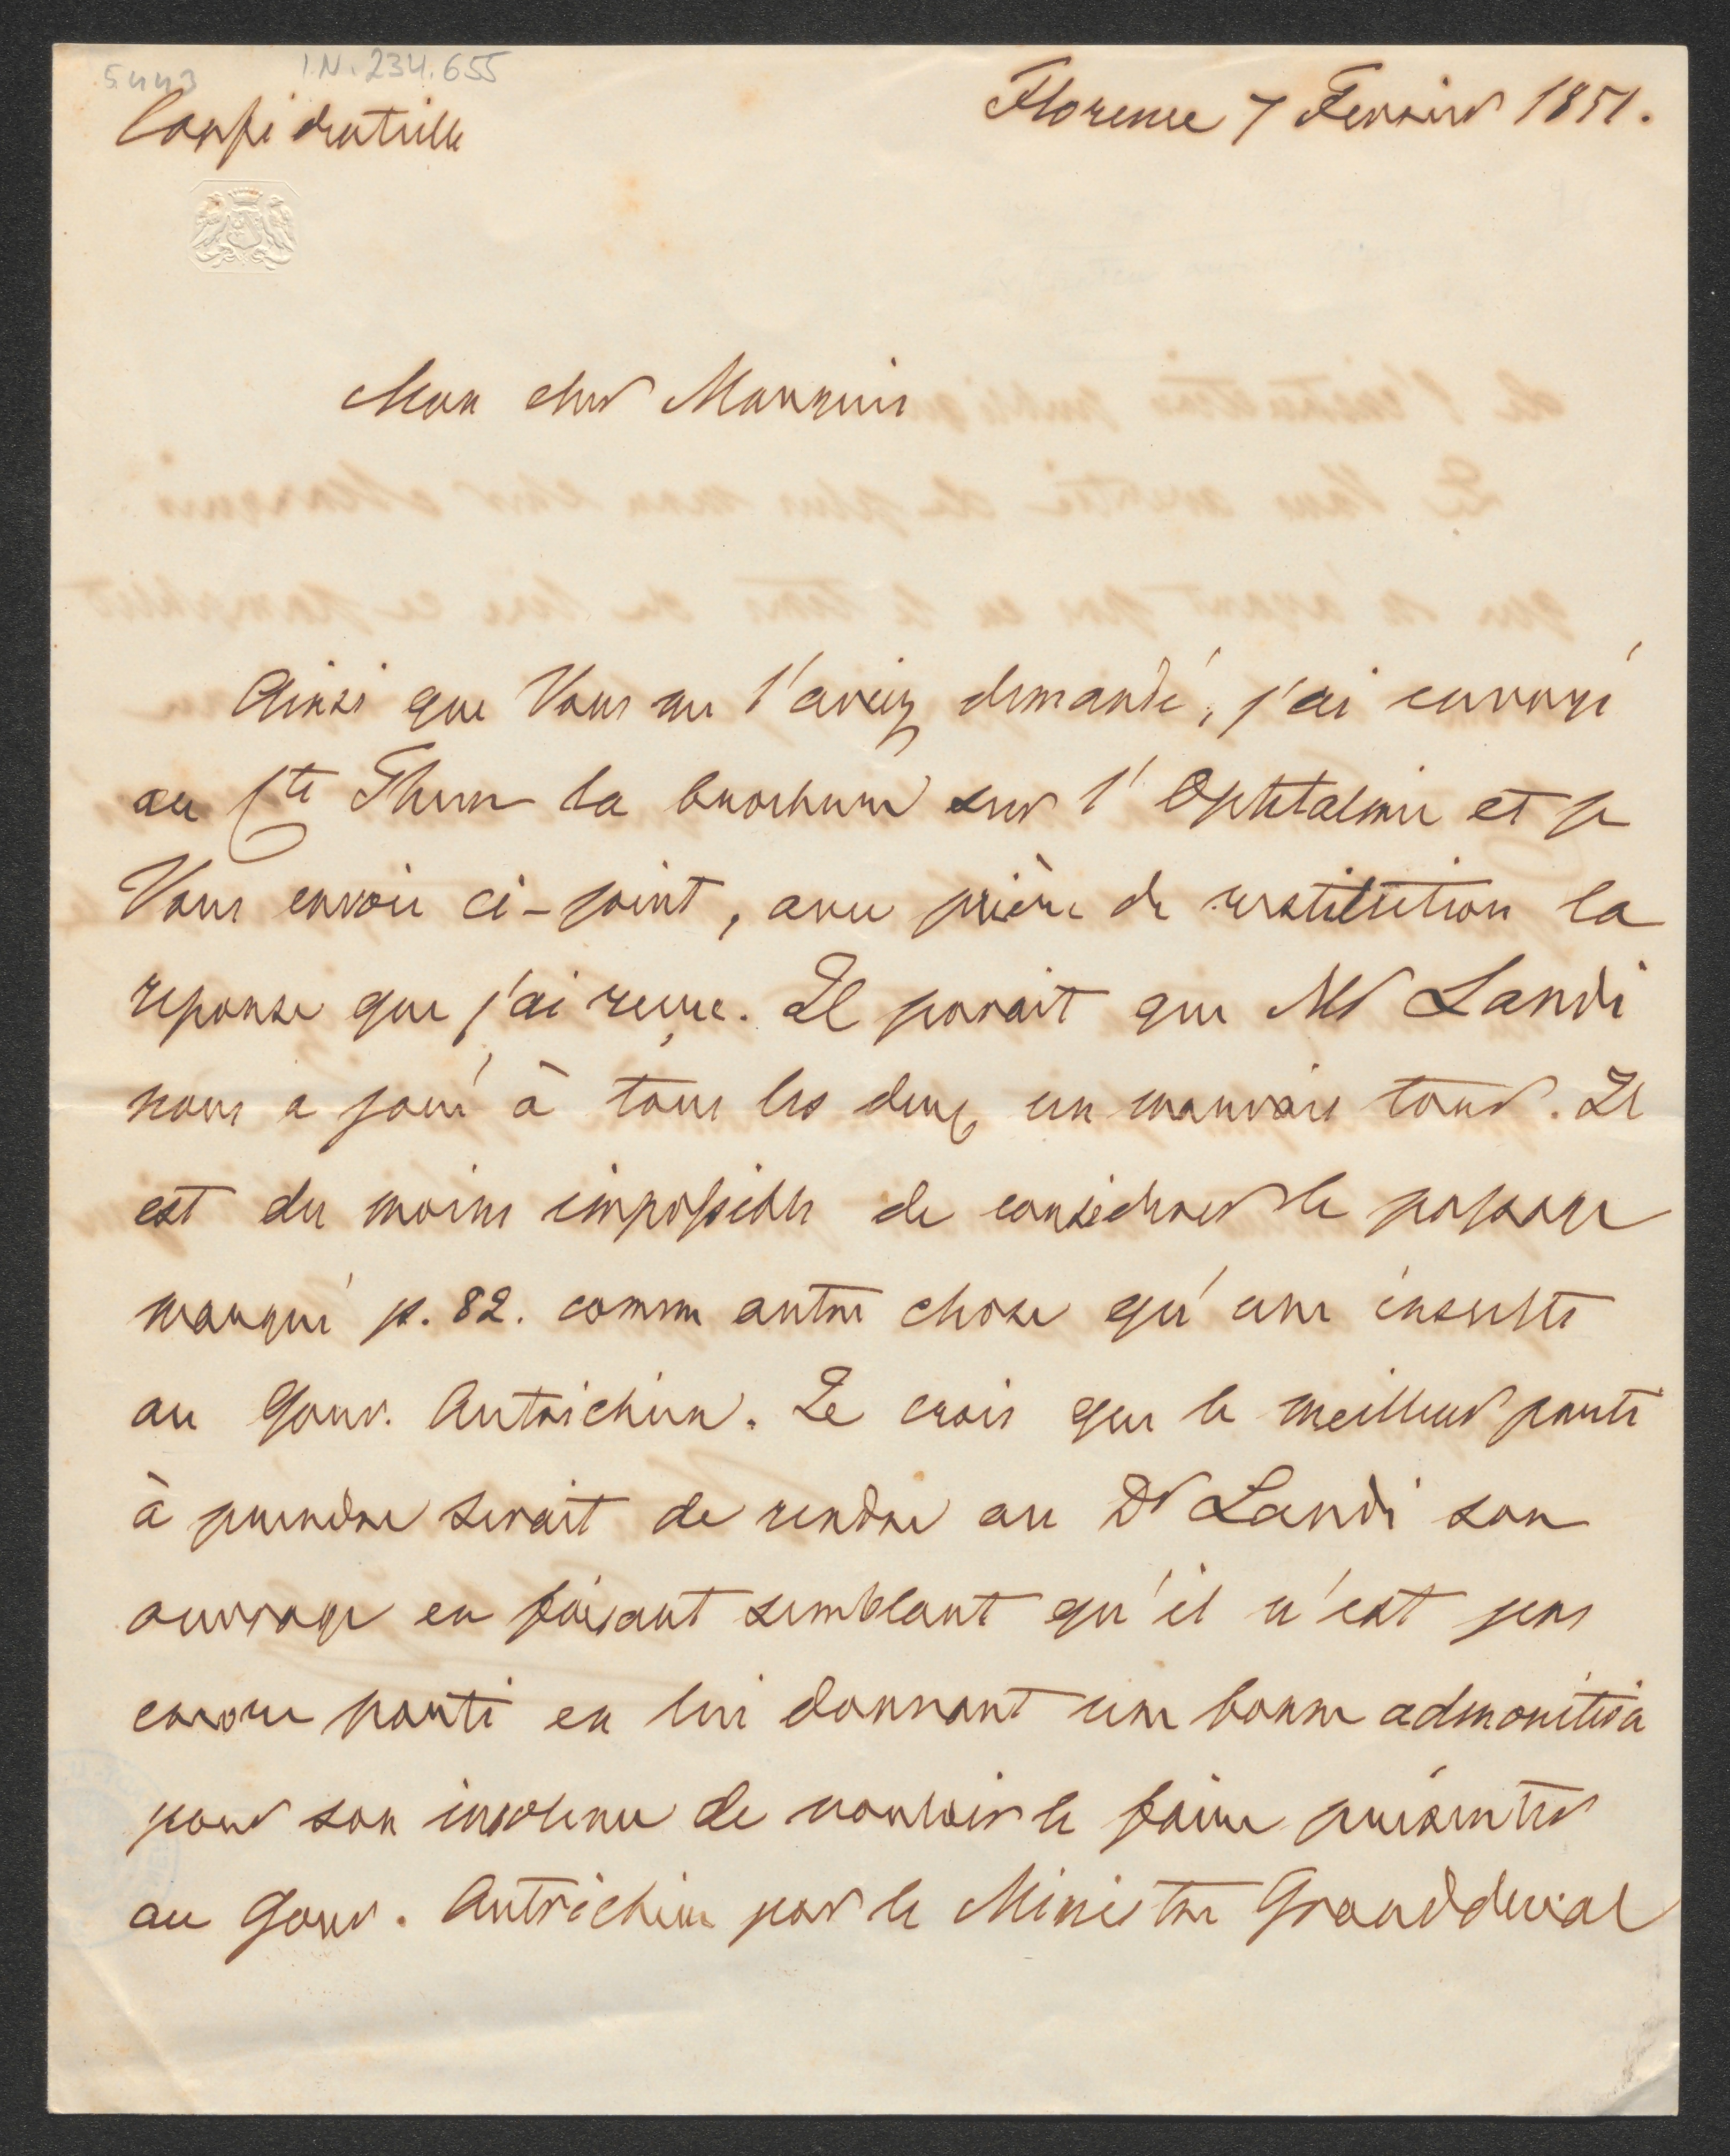 5443 I.N. 234.655
Confidentielle
Florence 7 Fevrier 1851.
Mon cher Marquis
Ainsi que Vous me l'aviez demandé, j'ai envoyé
au Cte Thun la brochure sur l'Ophtalmie et je
Vous envoie ci-joint, avec prière de restitution la
reponse que j'ai reçue. Il parait que Mr Landi
nous a joué à tous les deux un mauvais tour. Il
est du moins impossible de considerer le passage
marqué p. 82. comme autre chose qu'une insulte
au Gouv. Autrichien. Je crois que le meilleur parti
à prendre serait de rendre au Dr Landi son
ouvrage en faisant semblant qu'il n'est pas
encore parti en lui donnant une bonne admonition
pour son insolence de vouloir le faire présenter
au Gouv. Autrichien par le Ministre Grandducal